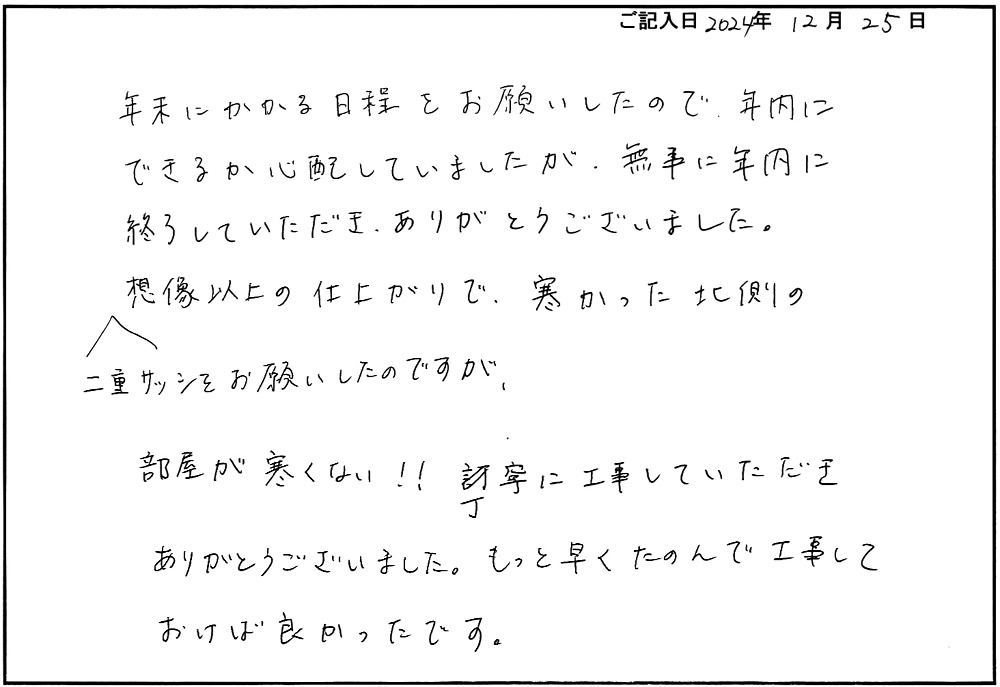 ご記入日 2024年 12月 25日
年末にかかる日程をお願いしたので、年内に
できるか心配していましたが、無事に年内に
終了していただき、ありがとうございました。
想像以上の仕上がりで、寒かった北側の
二重サッシをお願いしたのですが、
部屋が寒くない!! 丁寧に工事していただき
ありがとうございました。もっと早くたのんで工事して
おけば良かったです。